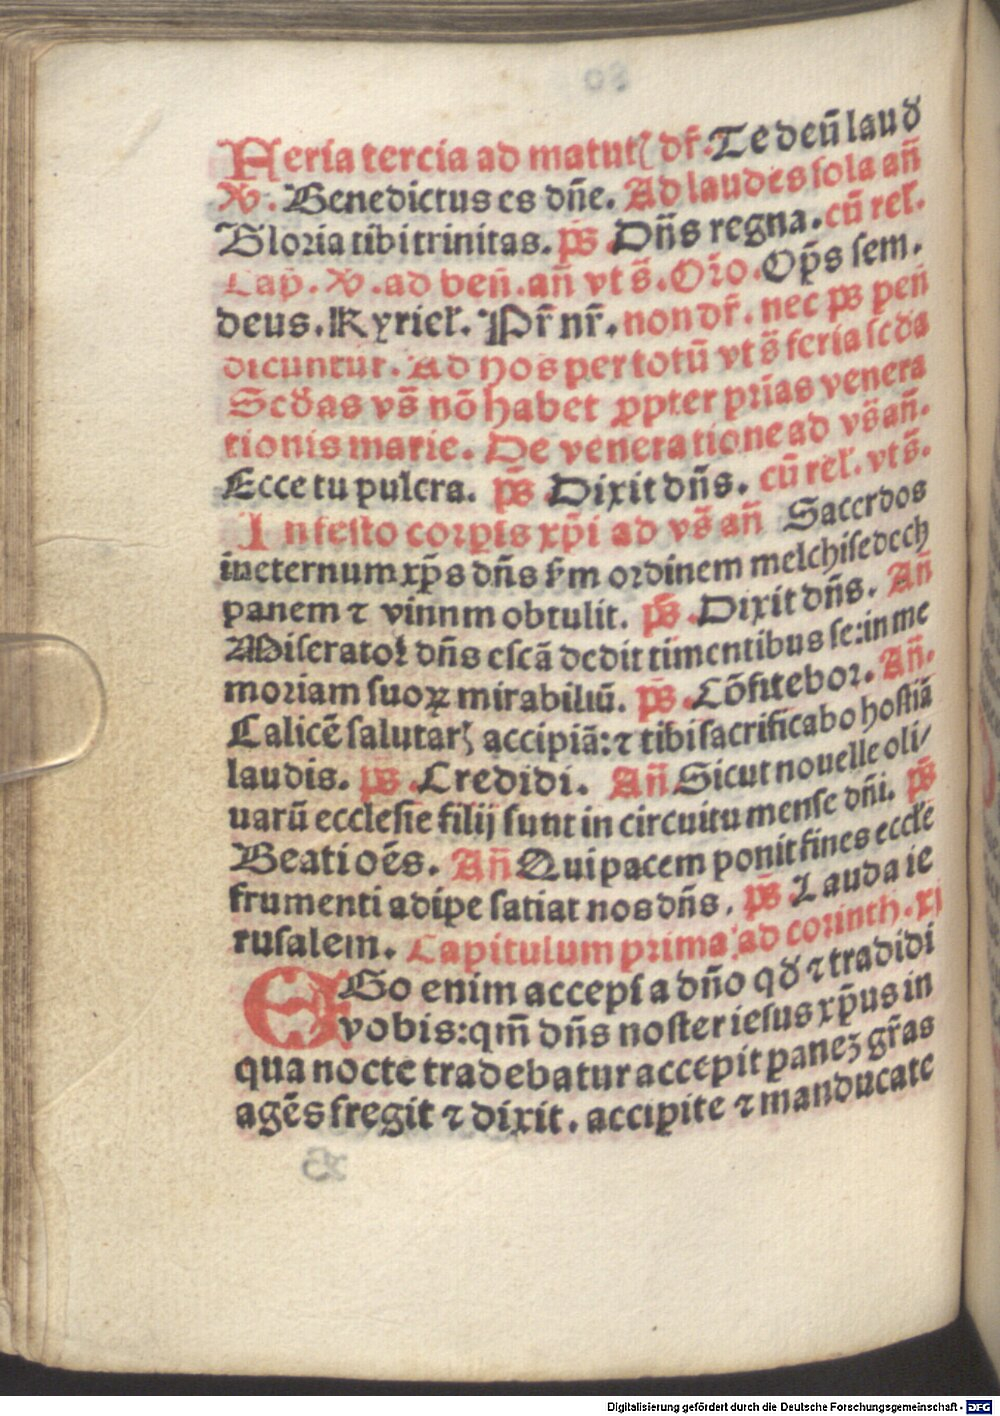 Feria tercia ad matutꝭ dr̄. Te deū laud
℣. Benedictus es dn̄e. Ad laudes sola an̄
Gloria tibi trinitas. ps̄. Dn̄s regna. cū rel̄.
Cap̄. ℣. ad ben̄. an̄ vt s̄. Or̄o. Op̄s sem.
deus. Kyriel̄. Pr̄ nr̄. non dr̄. nec ps pen̄
dicuntur. Ad hos per totū vt s̄ feria scd̄a
Scd̄as vs̄ nō habet ꝓpter prīas venera
tionis marie. De veneratione ad vs̄ an̄.
Ecce tu pulcra. ps̄. Dixit dn̄s. cū rel̄. vt s̄.
In festo corꝑis xp̄i ad vs̄ an̄ Sacerdos
ineternum xp̄s dn̄s s̄m ordinem melchisedech
panem ⁊ vinnm obtulit. ps̄. Dixit dn̄s. An̄
Miserator dn̄s escā dedit timentibus se: in me
moriam suoꝝ mirabiliū. ps̄. Cōfitebor. An̄.
Calicē salutarꝭ accipiā: ⁊ tibi sacrificabo hostiā
laudis. ps̄. Credidi. An̄ Sicut nouelle oli/
uarū ecclesie filij sunt in circuitu mense dn̄i. ps̄
Beati oēs. An̄ Qui pacem ponit fines eccl̄e
frumenti adipe satiat nos dn̄s. ps̄. Lauda ie
rusalem. Capitulum prima ad corinth. xi
EGo enim accepi a dn̄o qd̄ ⁊ tradidi
vobis: qm̄ dn̄s noster iesus xp̄us in
qua nocte tradebatur accepit panez gr̄as
agēs fregit ⁊ dixit. accipite ⁊ manducate
Digitalisierung gefördert durch die Deutsche Forschungsgemeinschaft - DFG